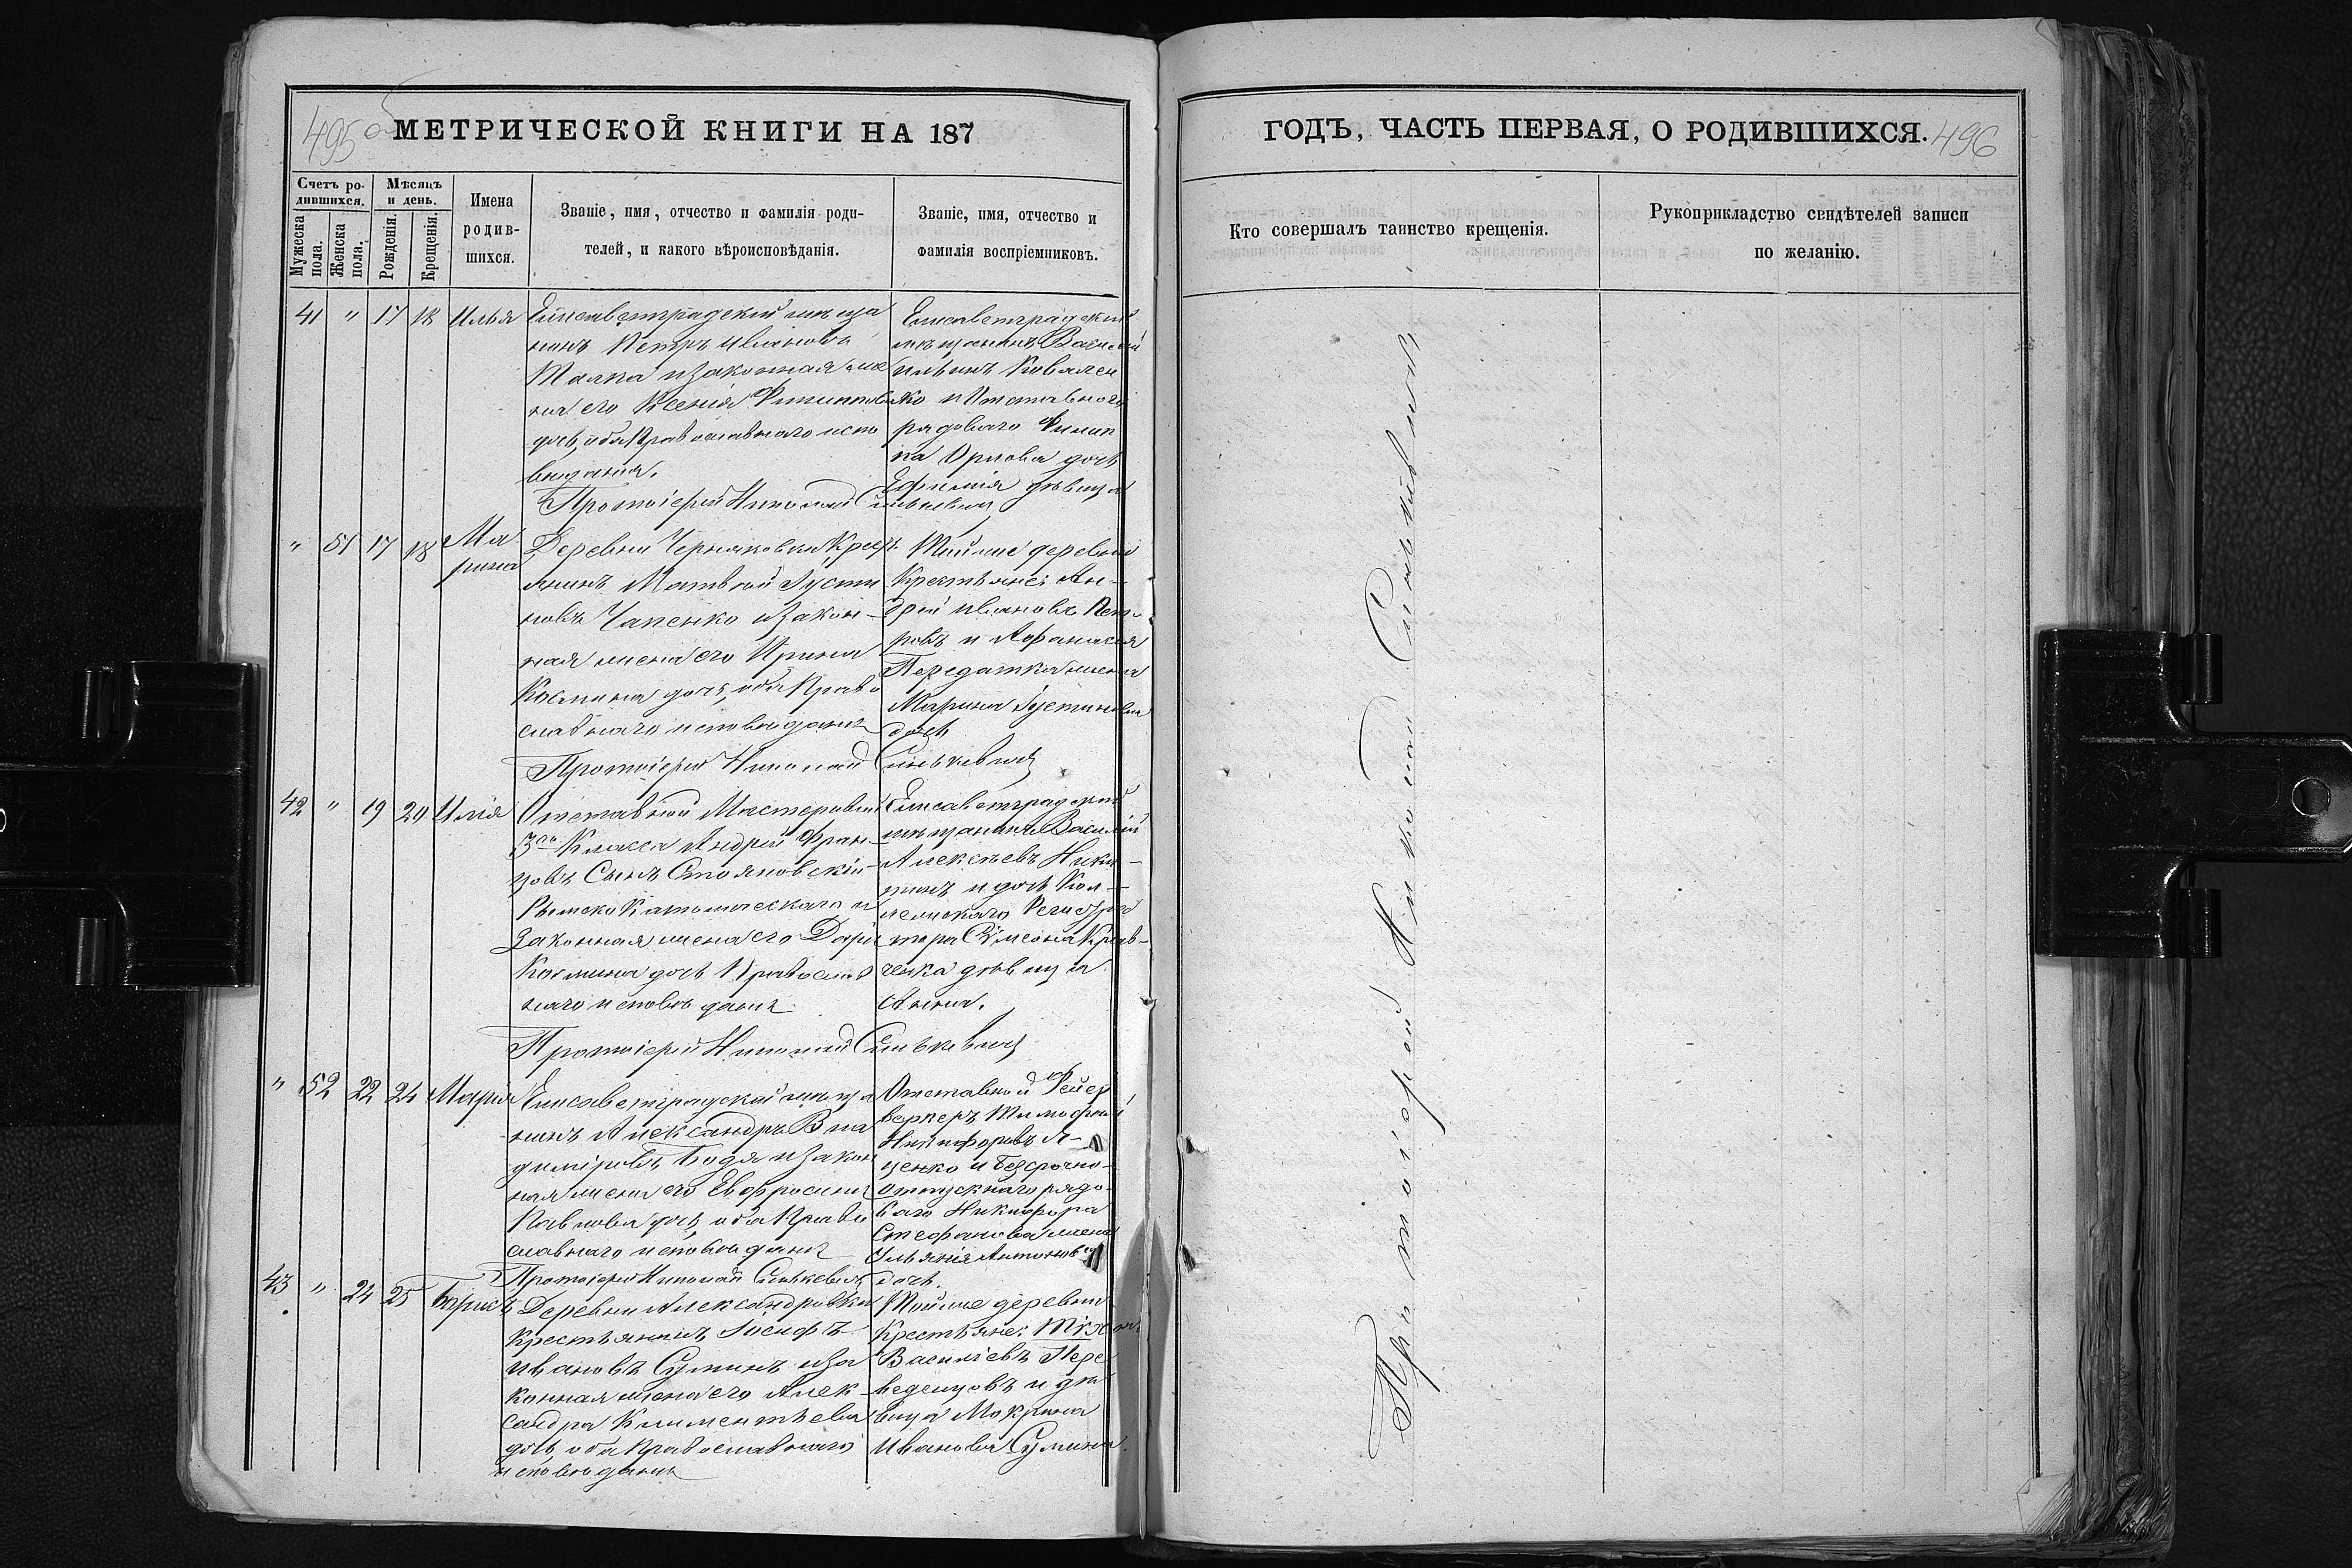 495 об
МЕТРИЧЕСКОЙ КНИГИ НА 187
Счетъ ро-
дившихся.
Мужеска
пола.
Женска
пола.
Мѣсяцъ
и день.
Рожденія.
Крещенія.
Имена
родив-
шихся.
Званіе, имя, отчество и фамилія роди-
телей, и какого вѣроисповѣданія.
Званіе, имя, отчество и
фамилія воспріемниковъ.
41 " 17 18 Илья
Елисаветградскій мѣща
нинъ Петръ Ивановъ
и законная же
на его Ксенія Филиппова
дочь, оба Православнаго испо
вѣданія.
Елисаветградскій
мѣщанинъ Василій
Ильинъ Ковален
ко и Отставнаго
рядоваго Филип
па Орлова дочь
Ефимія дѣвица
Протоіерей Николай Синькевичъ
" 51 17 18 Ма
рина
Деревни Черняховки Крестъ
янинъ Матвѣй Іусти
новъ Чапенко и закон-
ная жена его Ирина
Космина дочь, оба Право
славнаго исповѣданія
Тойже деревни
Крестьяне: Ан-
дрей Ивановъ Пет-
ровъ и Афанасія
Передатка жена
Марина Іустинова
дочь
Протоіерей Николай Синькевичъ
42 " 19 20 Илія
Отставной Мастеровой
3го Класса Андрей Фран-
цовъ Сынъ Стояновскій
Римско Католическаго и
Законная жена его Дарія
Космина дочь Православ
наго исповѣданія
Елисаветградскій
мѣщанинъ Василій
Алексѣевъ Ники-
тинъ и дочь Кол-
лежскаго Регистра
тора Сѵмеона Крав-
ченка дѣвица
Анна.
Протоіерей Николай Синькевичъ
" 52 22 24 Марія
Елисаветградскій мѣща
нинъ Александръ Вла
диміровъ Бодя и закон
ная жена его Евфросинія
Павлова дочь, оба Право
славнаго исповѣданія
Отставной Фейер
веркеръ Тимофей
Никифоровъ Я-
ценко и Безсрочно-
отпускнаго рядо-
ваго Никифора
Стефанова жена
Ульянія Антонова
дочь.
Протоіерей Николай Синькевичъ
43 " 24 25 Борисъ
Деревни Александровки
Крестьянинъ Іосифъ
Ивановъ Суминъ и за
конная жена его Алек-
сандра Климентьева
дочь, оба Православнаго
исповѣданія
Тойже деревни
Крестьяне:
Василіевъ Пере
веденцовъ и дѣ
вица Мокрина
Иванова Сумина.
ГОДЪ, ЧАСТЬ ПЕРВАЯ, О РОДИВШИХСЯ.
496
Кто совершалъ таинство крещенія.
Рукоприкладство свидѣтелей записи
по желанію.
Протоіерей Николай Синькевичъ